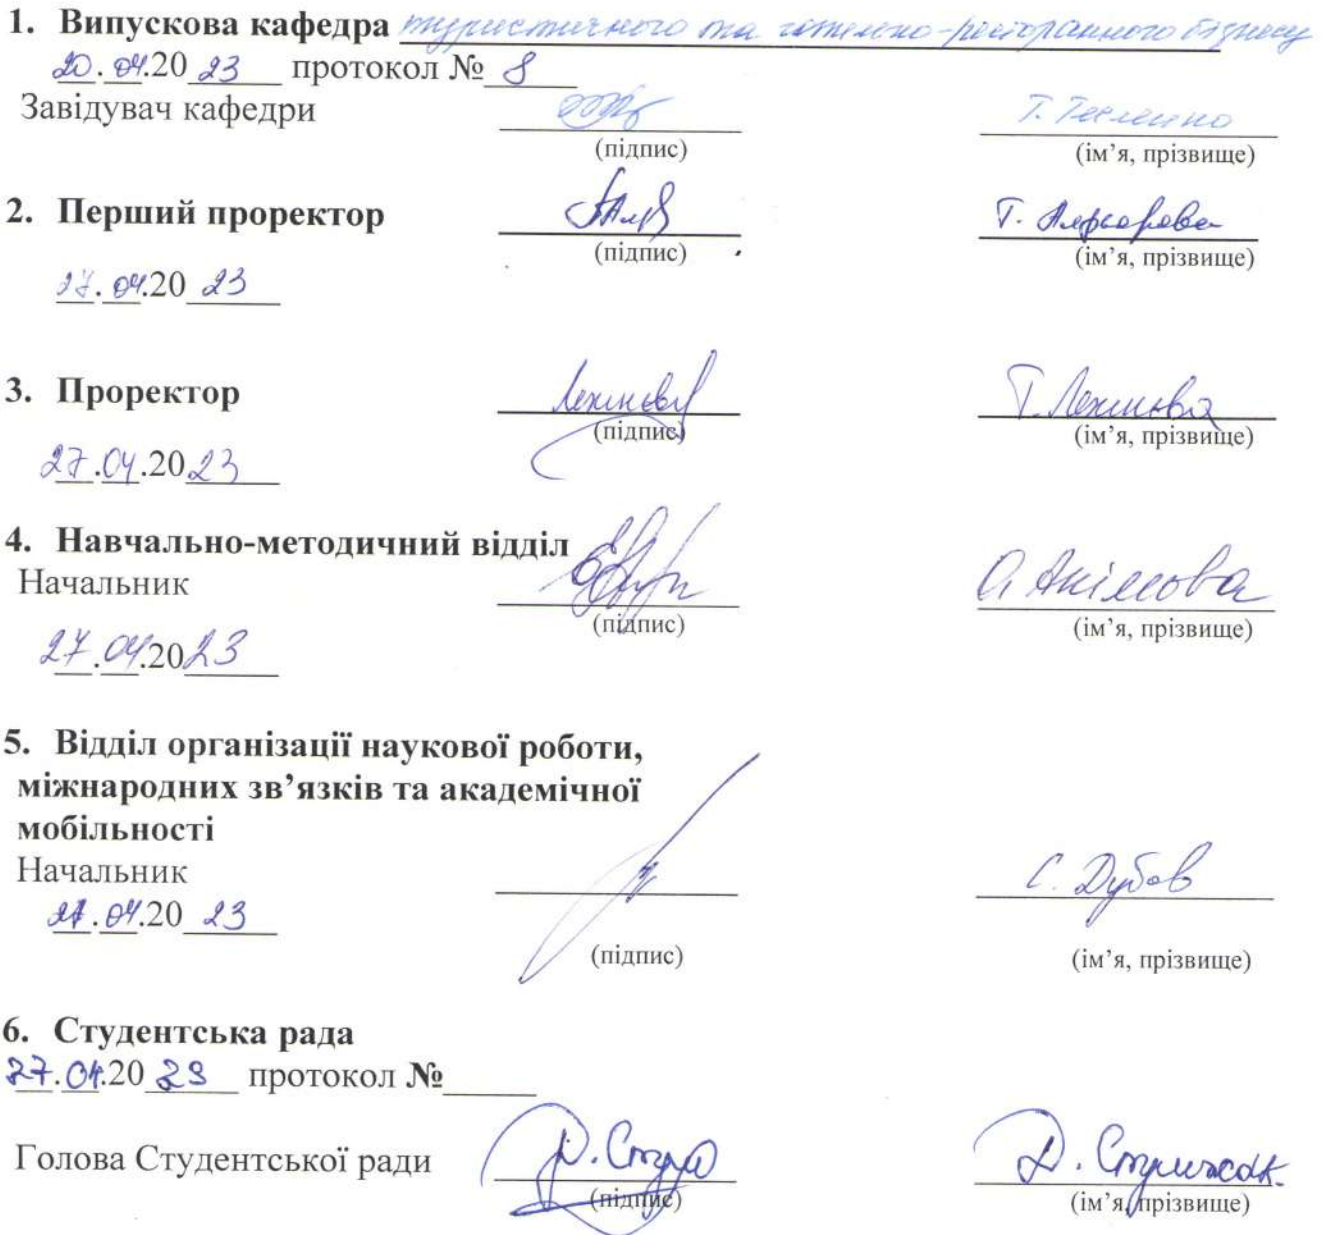 1. Випускова кафедра туристичного та готельно-ресторанного бізнесу
20.04.2023 протокол № 8
Завідувач кафедри Т. Тесленко
(підпис) (ім’я, прізвище)
2. Перший проректор Т. Алфьорова
(підпис) (ім’я, прізвище)
27.04.2023
3. Проректор Т. Лохинова
(підпис) (ім’я, прізвище)
27.04.2023
4. Навчально-методичний відділ
Начальник О. Акімова
(підпис) (ім’я, прізвище)
27.04.2023
5. Відділ організації наукової роботи,
міжнародних зв’язків та академічної
мобільності
Начальник С. Дубов
27.04.2023
(підпис) (ім’я, прізвище)
6. Студентська рада
27.04.2023 протокол №
Голова Студентської ради Д. Стрижак
(підпис) (ім’я, прізвище)